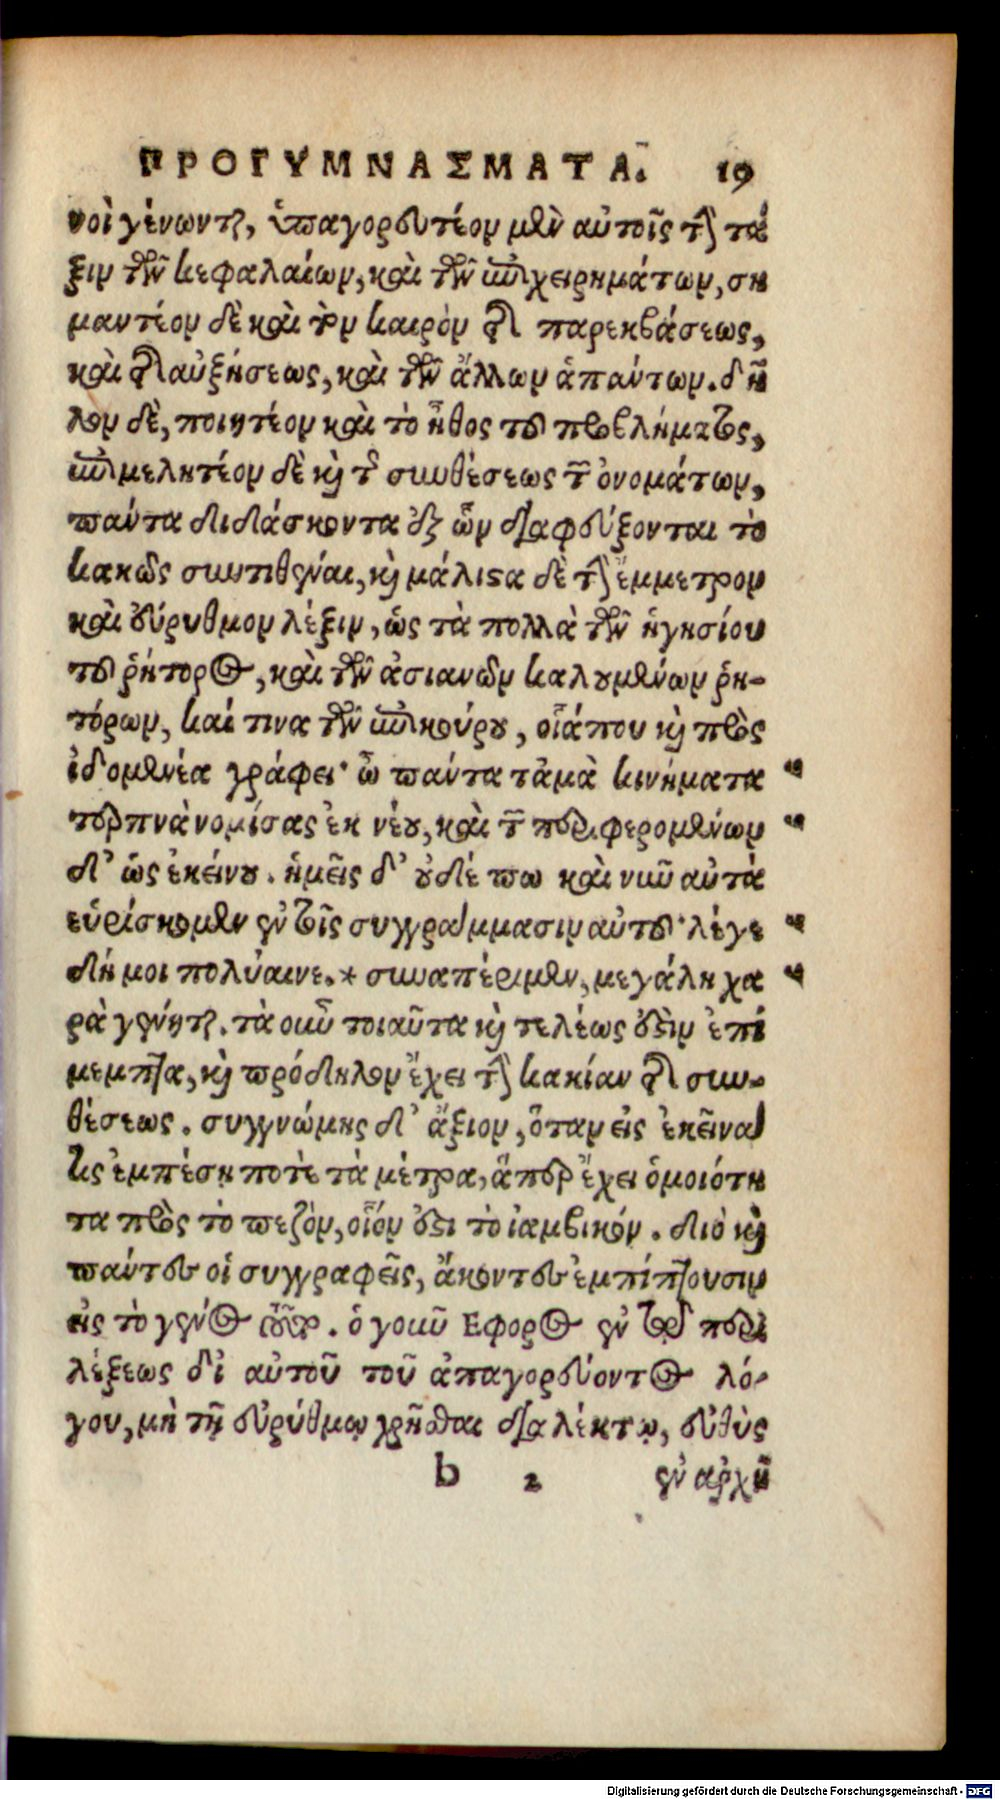 ΠΡΟΓΥΜΝΑΣΜΑΤΑ. 19
νοὶ γένωνται, ὑπαγορευτέον μὲν αὐτοῖς τὴν τά
ξιν τῶν κεφαλαίων, καὶ τῶν ἐπιχειρημάτων, ση
μαντέον δὲ καὶ τὸν καιρὸν τῆς παρεκβάσεως,
καὶ τῆς αὐξήσεως, καὶ τῶν ἄλλων ἁπάντων. δῆ
λον δὲ, ποιητέον καὶ τὸ ἦθος τοῦ προβλήματος,
ἐπιμελητέον δὲ καὶ τῆς συνθέσεως τῶν ὀνομάτων,
πάντα διδάσκοντα ἐξ ὧν διαφεύξονται τὸ
κακῶς συντιθέναι, καὶ μάλιστα δὲ τὴν ἔμμετρον
καὶ εὔρυθμον λέξιν, ὡς τὰ πολλὰ τῶν ἡγησίου
τοῦ ῥήτορος, καὶ τῶν ἀσιανῶν καλουμένων ῥη-
τόρων, καί τινα τῶν ἐπικούρου, οἷά που καὶ πρὸς
ἰδομενέα γράφει· ὦ πάντα τἀμὰ κινήματα
τερπνὰ νομίσας ἐκ νέου, καὶ τῶν περιφερομένων
δ' ὡς ἐκείνου. ἡμεῖς δ' οὐδέπω καὶ νῦν αὐτὰ
εὑρίσκομεν ἐν τοῖς συγγράμμασιν αὐτοῦ· λέγε
δή μοι πολύαινε. * συναπέριμεν, μεγάλη χα
ρὰ γένηται. τὰ οὖν τοιαῦτα καὶ τελέως ἐστὶν ἐπί
μεμπτα, καὶ πρόδηλον ἔχει τὴν κακίαν τῆς συν-
θέσεως. συγγνώμης δ' ἄξιον, ὅταν εἰς ἐκεῖνα
τις ἐμπέσῃ ποτὲ τὰ μέτρα, ἅπερ ἔχει ὁμοιότη
τα πρὸς τὸ πεζὸν, οἷόν ἐστι τὸ ἰαμβικόν. διὸ καὶ
πάντες οἱ συγγραφεῖς, ἄκοντες ἐμπίπτουσιν
εἰς τὸ γένος τοῦτο. ὁ γοῦν Εφορος ἐν τῷ περὶ
λέξεως δι' αὐτοῦ τοῦ ἀπαγορεύοντος λό-
γου, μὴ τῇ εὐρύθμῳ χρῆσθαι διαλέκτῳ, εὐθὺς
b 2 ἐν ἀρχῇ
Digitalisierung gefördert durch die Deutsche Forschungsgemeinschaft - DFG